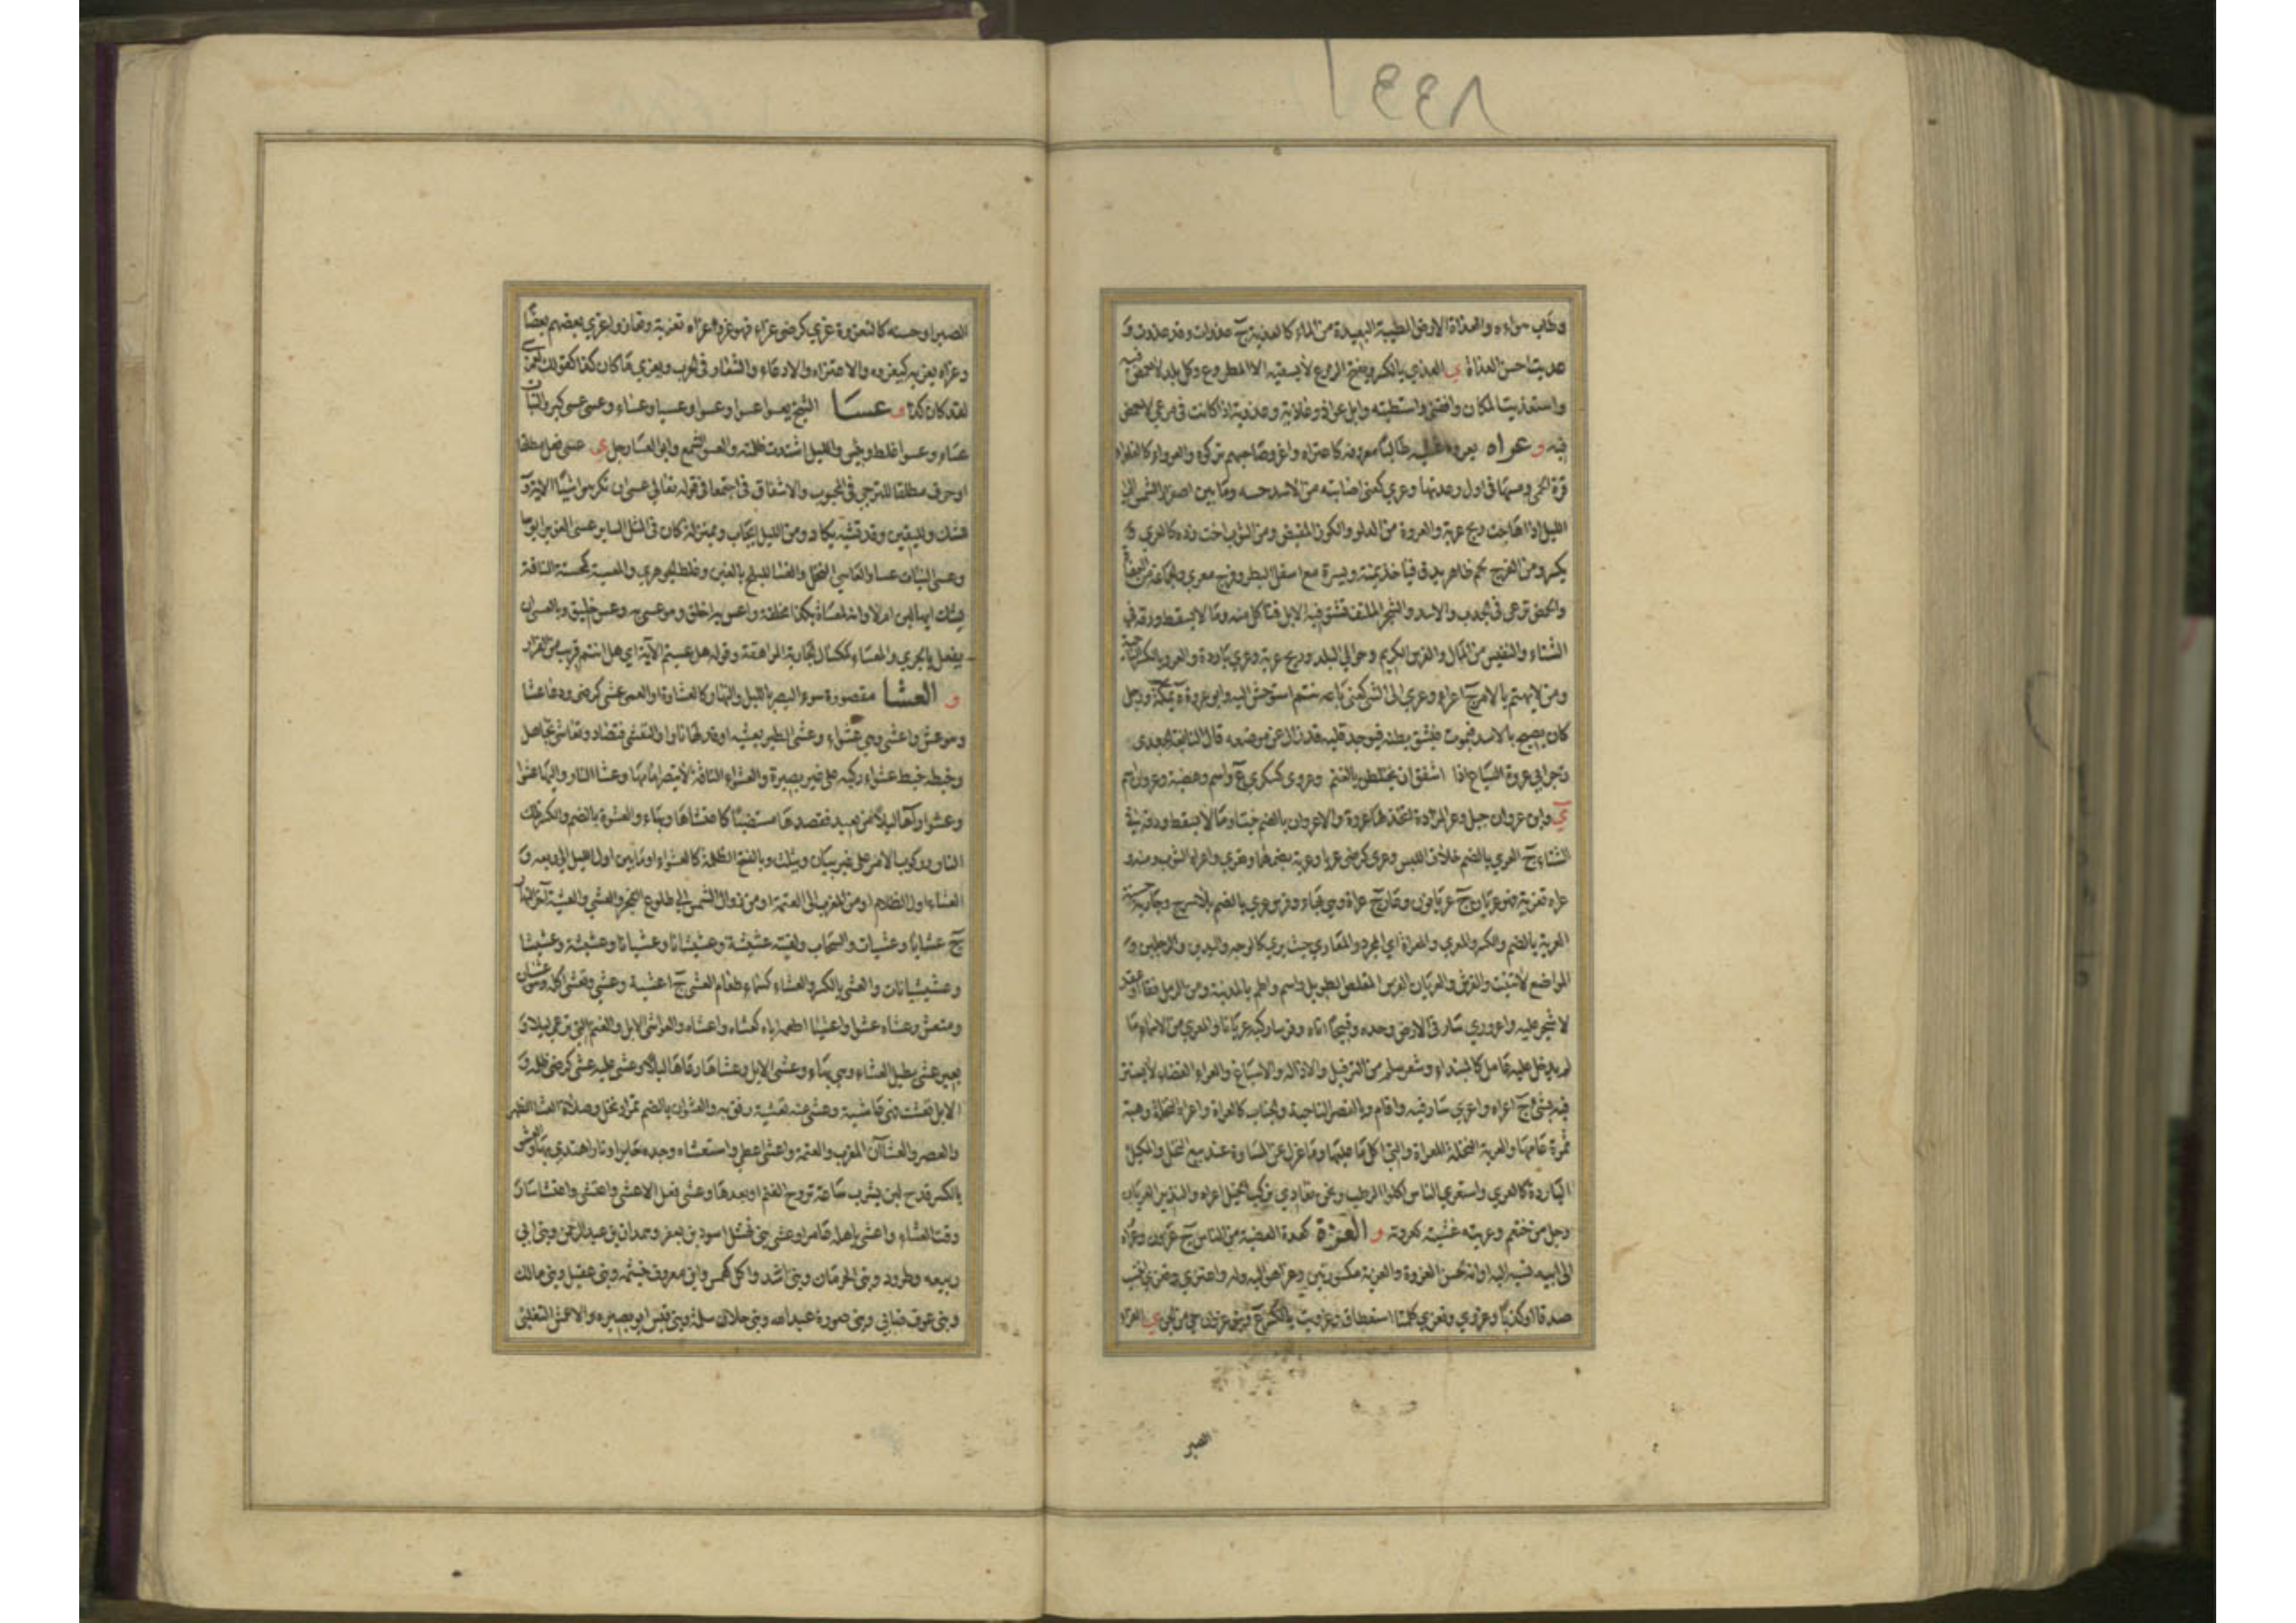 ١٤٤٨
وطاب هواءه والعذاة الارض الطيبة البعيدة من الماء كالعذية ج عذوات وقد عذوت و
عذيت احسن العذاة ي العذي بالكسر ويفتح الزرع لا يسقيه الا المطر وع وكل بلد لا حمض فيه
واستعذيت المكان وافقني واستطبته وابل عواذ وعاذية وعذوية اذا كانت في مرعى لا حمض
فيه و عراه يعروه غشيه طالبًا معروفه كاعتراه واعرى صاحبهم تركوه والعرواء كالغلواء
قرة الحمى ومسها في اول رعدتها وعري كعني اصابته من الاسد حسه وما بين اصفرار الشمس الى
الليل اذا هاجت ريح عرية والعروة من الدلو والكوز المقبض ومن الثوب اخت زره كالعري و
يكسر ومن الفرج لحم ظاهره يدق فياخذ يمنة ويسرة مع اسفل البظر وفرج معرى والجماعة من العضاه
والحمض ترعى في الجدب والاسد والشجر الملتف تشتو فيه الابل فتاكل منه وما لا يسقط ورقه في
الشتاء والنفيس من المال والفرس الكريم وحوالي البلد وريح عرية وعري باردة والعرو بالكسر
ومن لا يهتم بالامر ج اعراء وعري الى الشي كعني باعه ثم استوحش اليه وابو عروة ة بمكة ورجل
كان يصيح بالاسد فيموت فيشق بطنه فيوجد قلبه قد زال عن موضعه قال النابغة الجعدي
زجر ابي عروة السباع اذا اشفق ان يختلطن بالغنم وعروى كسكرى ع واسم وهضبة وعروان اسم
ي وابن عروان جبل وعرا المزادة اتخذ لها عروة والاعروان بالضم نبت وما لا يسقط ورقه في
الشتاء ج العري بالضم خلاف اللبس وعري كرضي عريا وعرية بضمهما وتعرى واعراه الثوب ومنه و
عراه تعرية فهو عريان ج عريانون وعار ج عراة وهي بهاء وفرس عري بالضم بلا سرج وجارية حسنة
العرية بالضم والكسر والمعرى والمعراة اي المجرد والمعاري حيث يرى كالوجه واليدين والرجلين و
المواضع لا تنبت والفرش والعريان الفرس المقلص الطويل واسم واطم بالمدينة ومن الرمل نقا او عقد
لا شجر عليه واعرورى سار في الارض وحده وقبيحا اتاه وفرسا ركبه عريانا والمعرى من الاسماء ما
لم يدخل عليه عامل كالمبتداء وشعر سلم من الترفيل والاذالة والاسباغ والعراء الفضاء لا يستتر
فيه بشئ ج اعراء واعرى سار فيه واقام وبالقصر الناحية والجناب كالعراة واعراه النخلة وهبه
ثمرة عامها والعرية النخلة المعراة والتي اكل ما عليها وما عزل عن المساومة عند بيع النخل والمكتل
الباردة كالعري واستعرى الناس اكلوا الرطب ونحن نعاري نركب الخيل اعراء والنذير العريان
رجل من خثعم وعريته غشيته كعروته و العزة كعدة العصبة من الناس ج عزون وعزاه
الى ابيه نسبه اليه وانه لحسن العزوة والعزية مكسورتين وعزا هو اليه وله واعتزى وتعزى انتسب
صدقا او كذبا وعزوى وتعزى كلمتا استعطاف وعزويت بالكسر ع وبنو عزوان حي من الجن ي العزاء
الصبر
الصبر او حسنه كالتعزوة عزي كرضي عزاء فهو عز وعزاه تعزية وتعازوا عزى بعضهم بعضًا
وعزاه يعزيه كيعزوه والاعتزاء والادعاء والشعار في الحرب ويعزى ما كان كذا كقولك لعمري
لقد كان كذا و عسا الشيخ يعسو عسوا وعسوا وعسيا وعساء وعسى عسى كبر والنبات
عساء وعسوا غلظ ويبس والليل اشتدت ظلمته والعسو الشمع وابو العسا رجل ي عسى فعل مطلقا
او حرف مطلقا للترجي في المحبوب والاشفاق في اجتمعا في قوله تعالى عسى ان تكرهوا شيئًا الآية و
للشك ولليقين وقد تشبه بكاد ومن الله ايجاب وبمنزلة كان في المثل السائر عسى الغوير ابؤسا
وعسى النبات عسا والعاسي النخل والعسا للبلح بالغين وغلط الجوهري والمعسية كمحسنة الناقة
يشك ابها لبن ام لا وانه لمعساة بكذا مخلقة واعس به اخلق وهو عسي به وعس خليق وبالعسى ان
يفعل بالحري والمعساء كمكسال الجارية المراهقة وقوله هل عسيتم الآية اي هل انتم قريب من الفرار
و العشا مقصورة سوء البصر بالليل والنهار كالعشاوة او العمى عشي كرضي ودعا عشا
وهو عش واعشى وهي عشواء وعشى الطير تعشية اوقد لها نارا لتعشى فتصاد وتعاشى تجاهل
وخبطه خبط عشواء ركبه على غير بصيرة والعشواء الناقة لا تبصر امامها وعشا النار واليها عشوا
وعشوا رآها ليلا من بعيد فقصدها مستضيئًا كاعتشاها وبهاء والعشوة بالضم والكسر تلك
النار وركوب الامر على غير بيان ويثلث وبالفتح الظلمة كالعشواء او ما بين اول الليل الى ربعه و
العشاء اول الظلام او من المغرب الى العتمة او من زوال الشمس الى طلوع الفجر والعشي والعشية آخر النهار
ج عشايا وعشيات والسحاب ولقيته عشيشة وعشيشانا وعشيانا وعشيشة وعشيشا
وعشيشيانات والعشي بالكسر والعشاء كسماء طعام العشي ج اعشية وعشي وتعشى اكله وهو عشيان
ومتعش وعشاه عشوا وعشيا اطعمه اياه كعشاه واعشاه والعواشي الابل والغنم التي ترعى ليلا و
بعير عشي يطيل العشاء وهي بهاء وعشى الابل وعشاها رعاها ليلا وعشي عليه عشى كرضي ظلمه و
الابل تعشت فهي عاشية وعشى عنه تعشية رفق به والعشوان بالضم تمر او نخل وصلاتا العشا الظهر
والعصر والعشاآن المغرب والعتمة واعشى اعطى واستعشاه وجده جايرا ونارا اهتدى بها والعشو
بالكسر قدح لبن يشرب ساعة تروح الغنم او بعدها وعشى فعل الاعشى واعتشى واعتشا سار
وقت العشاء واعشى باهلة عامر واعشى بني نهشل اسود بن يعفر وهمدان بن عبد الرحمن وبني ابي
ربيعه وطرود وبني الحرمان وبني اسد وا كل كهمس وابن معروف خيثمه وبني عقيل وبني مالك
وبني عوف ضابئ وبني صورة عبد الله وبني جلان سلمة وبني قيس ابو بصيره والاعشى التغلبي